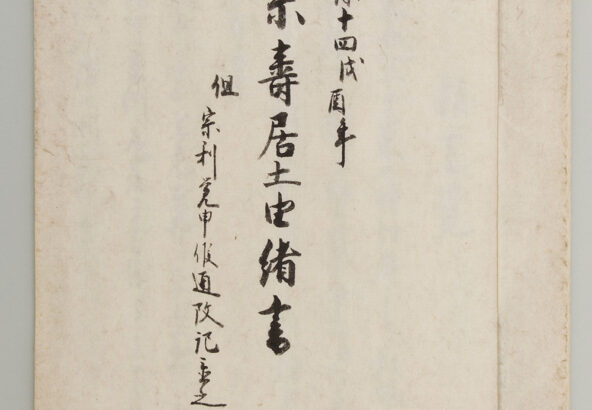 十四戊酉年
宗壽居士由緒書
但 宗利覚申候通改記置之